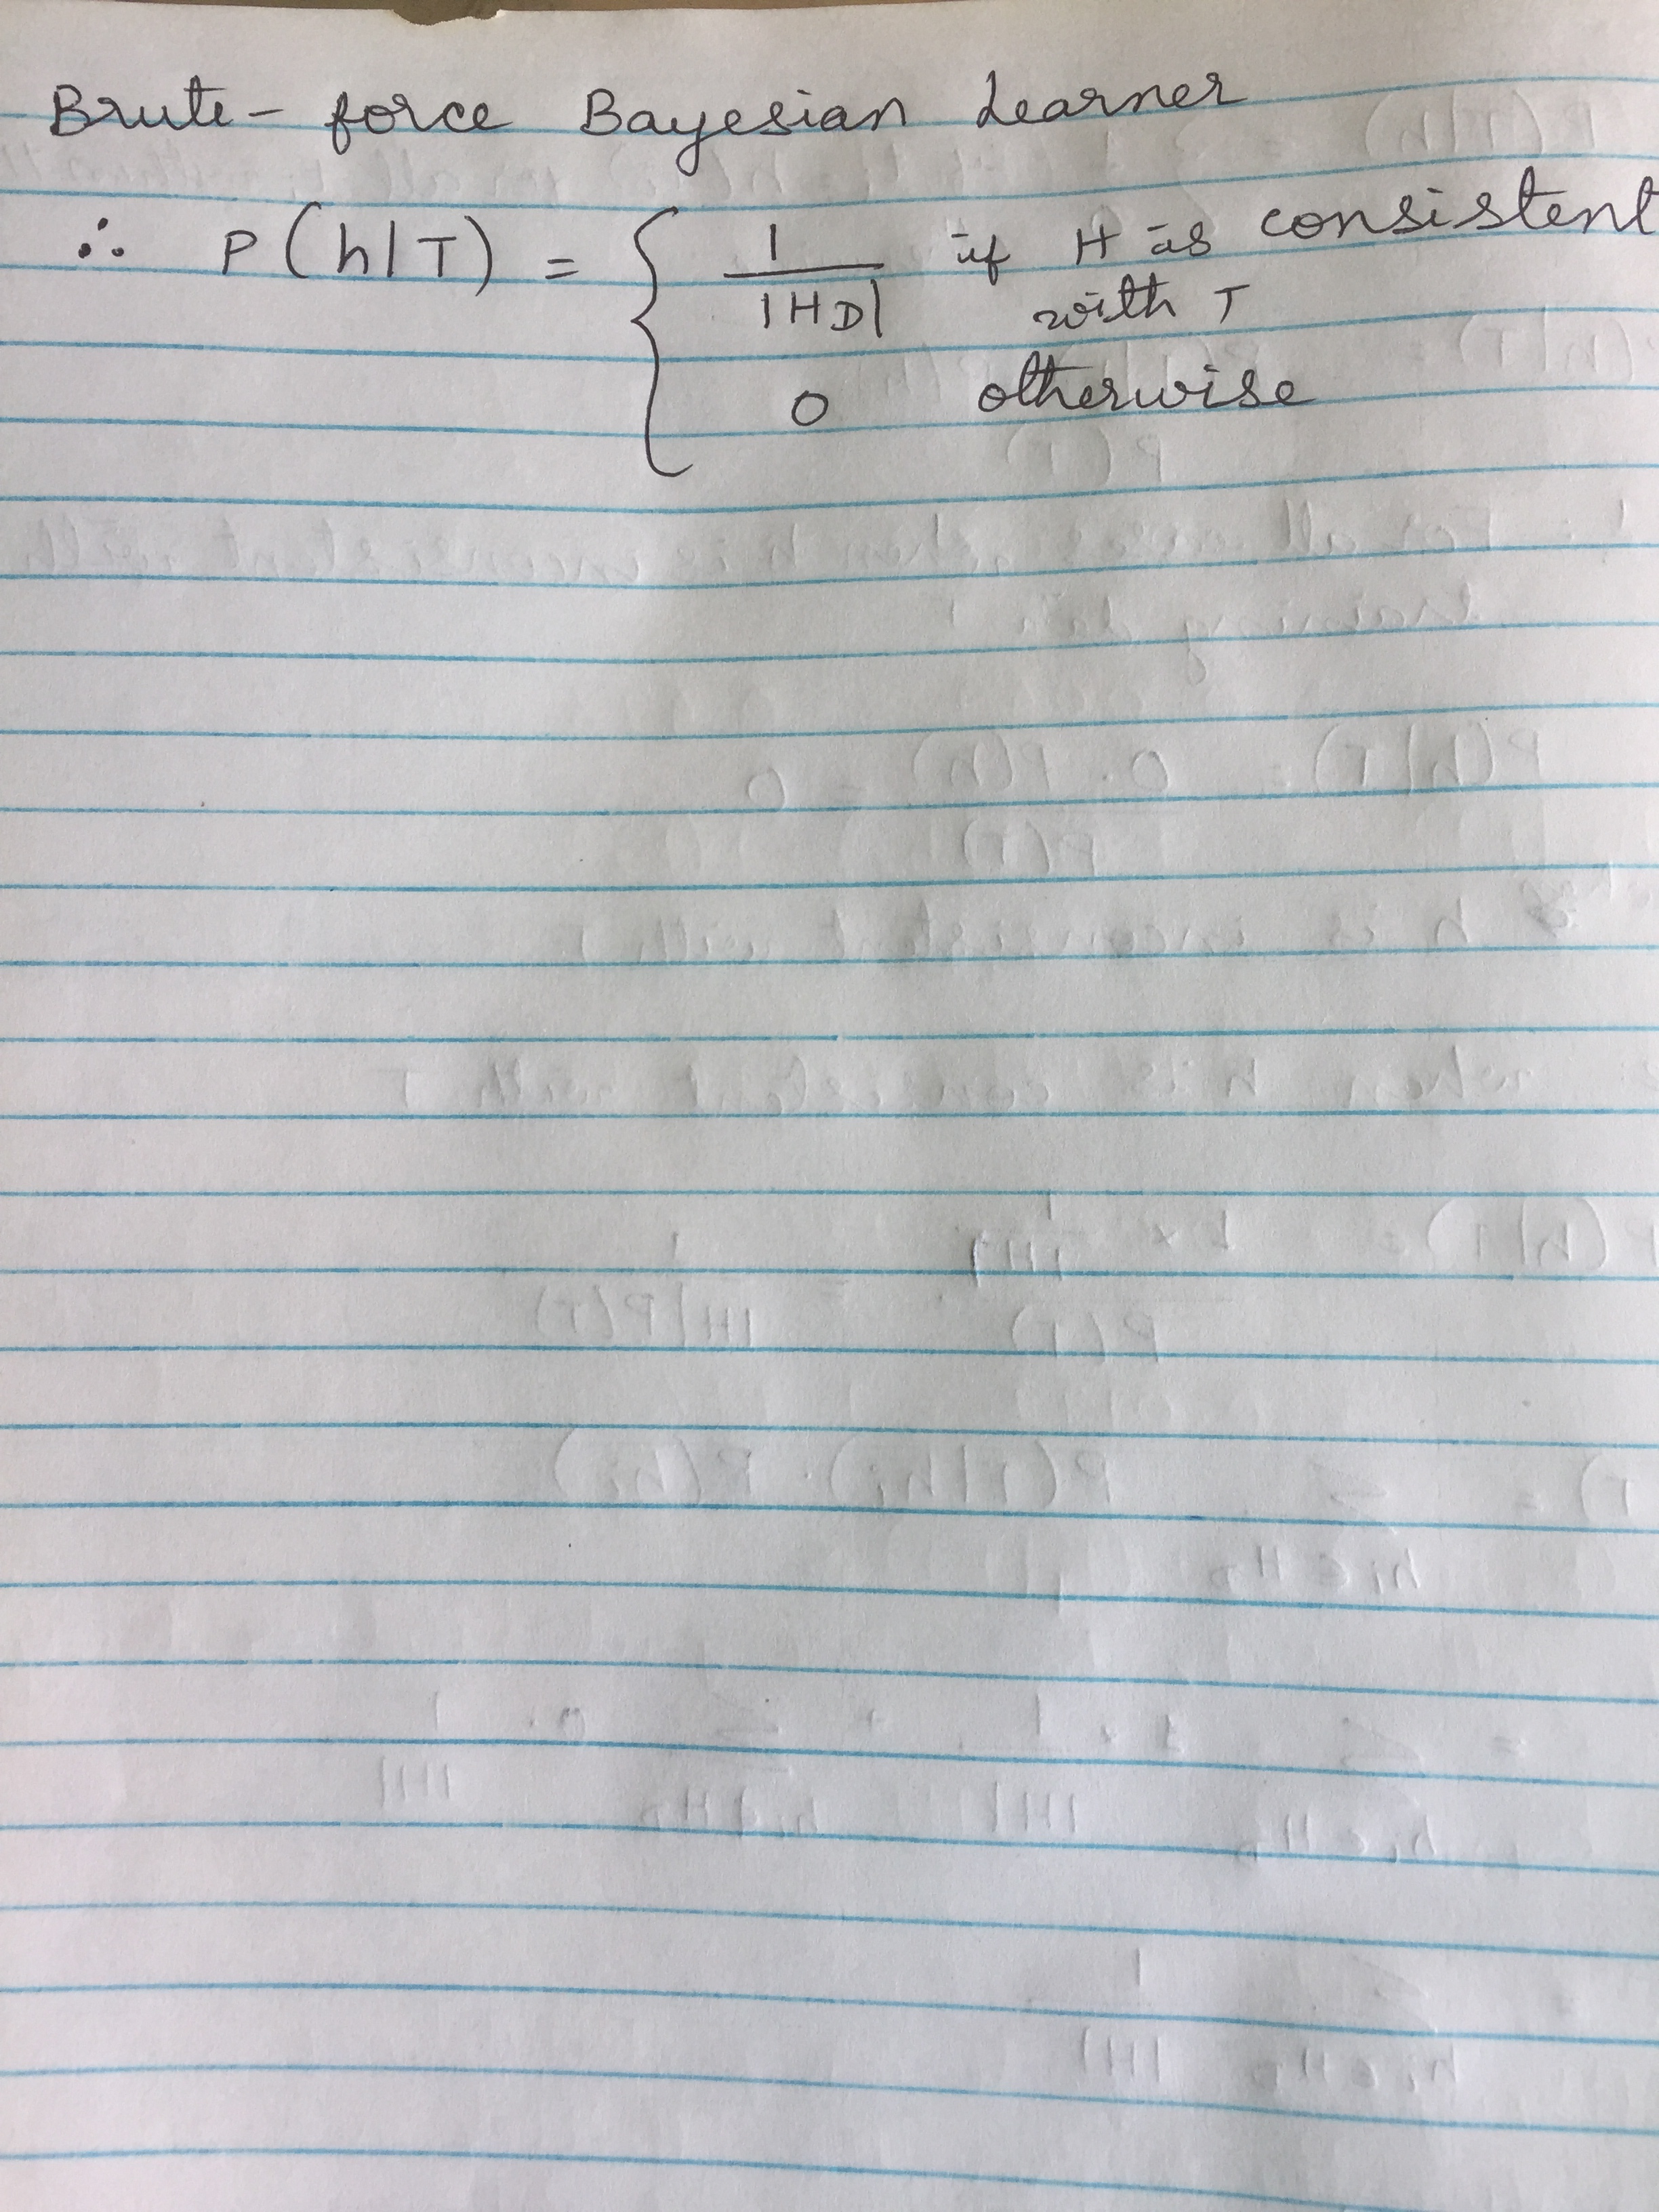 Brute-force Bayesian Learner
∴ P(h|T) = { 1/|HD| if H is consistent
with T
0 otherwise